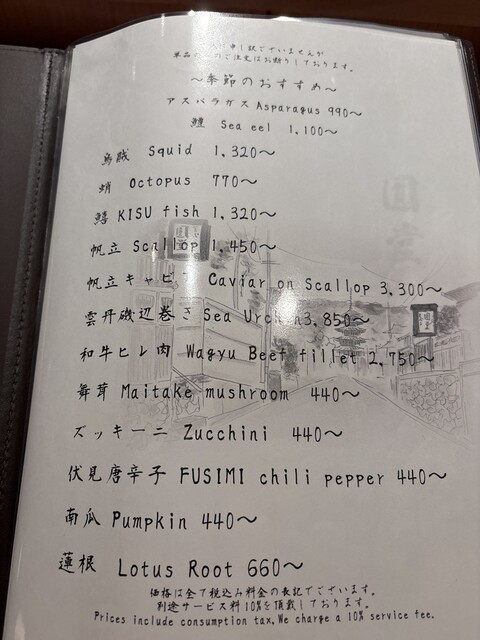 申し訳ございませんが
単品のみのご注文はお断りしております。
～季節のおすすめ～
アスパラガス Asparagus 990～
鱧 Sea eel 1,100～
烏賊 Squid 1,320～
蛸 Octopus 770～
鱚 KISU fish 1,320～
帆立 Scallop 1,450～
帆立キャビア Caviar on Scallop 3,300～
雲丹磯辺巻き Sea Urchin 3,850～
和牛ヒレ肉 Wagyu Beef fillet 2,750～
舞茸 Maitake mushroom 440～
ズッキーニ Zucchini 440～
伏見唐辛子 FUSIMI chili pepper 440～
南瓜 Pumpkin 440～
蓮根 Lotus Root 660～
価格は全て税込み料金の表記でございます。
別途サービス料10%を頂戴しております。
Prices include consumption tax. We charge a 10% service fee.